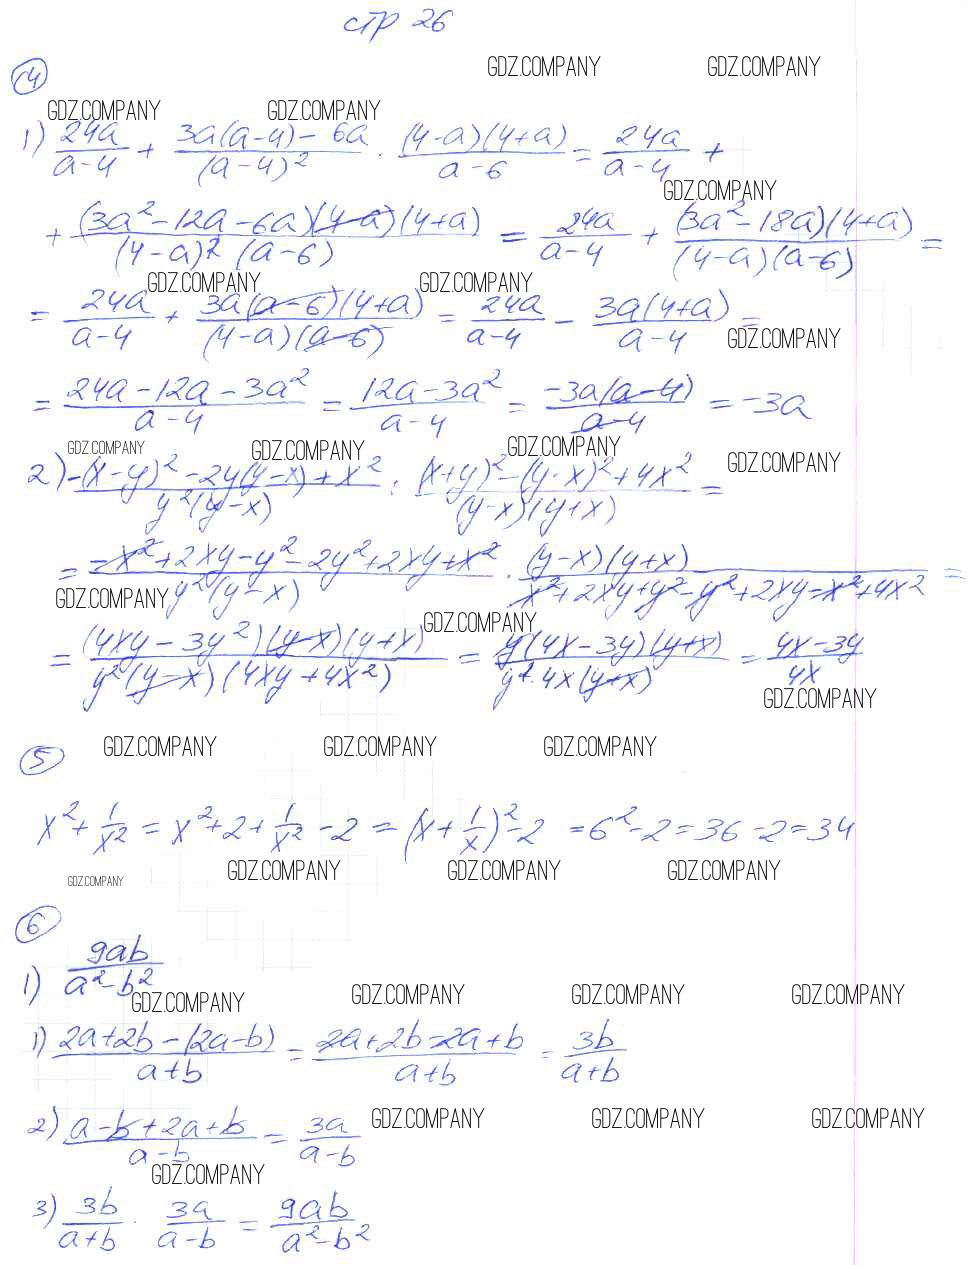 стр 26
4
GDZ.COMPANY GDZ.COMPANY
GDZ.COMPANY GDZ.COMPANY
1) 24a/(a-4) + (3a(a-4) - 6a)/(a-4)² · (4-a)(4+a)/(a-6) = 24a/(a-4) +
GDZ.COMPANY
+ (3a² - 12a - 6a)(4-a)(4+a)/((4-a)² (a-6)) = 24a/(a-4) + (3a² - 18a)(4+a)/((4-a)(a-6)) =
GDZ.COMPANY GDZ.COMPANY
= 24a/(a-4) + 3a(a-6)(4+a)/((4-a)(a-6)) = 24a/(a-4) - 3a(4+a)/(a-4) =
GDZ.COMPANY
= (24a - 12a - 3a²)/(a-4) = (12a - 3a²)/(a-4) = -3a(a-4)/(a-4) = -3a
GDZ.COMPANY GDZ.COMPANY GDZ.COMPANY GDZ.COMPANY
2) (-(x-y)² - 2y(y-x) + x²)/(y²(y-x)) : ((x+y)² - (y-x)² + 4x²)/((y-x)(y+x)) =
= (-x² + 2xy - y² - 2y² + 2xy + x²)/(y²(y-x)) · (y-x)(y+x)/(x² + 2xy + y² - y² + 2xy - x² + 4x²) =
GDZ.COMPANY GDZ.COMPANY
= (4xy - 3y²)(y-x)(y+x)/(y²(y-x)(4xy + 4x²)) = y(4x - 3y)(y+x)/(y² · 4x(y+x)) = (4x - 3y)/4x
GDZ.COMPANY
5
GDZ.COMPANY GDZ.COMPANY GDZ.COMPANY
x² + 1/x² = x² + 2 + 1/x² - 2 = (x + 1/x)² - 2 = 6² - 2 = 36 - 2 = 34
GDZ.COMPANY GDZ.COMPANY GDZ.COMPANY GDZ.COMPANY
6
1) 9ab/(a² - b²)
GDZ.COMPANY GDZ.COMPANY GDZ.COMPANY GDZ.COMPANY
1) (2a + 2b - (2a - b))/(a+b) = (2a + 2b - 2a + b)/(a+b) = 3b/(a+b)
2) (a - b + 2a + b)/(a-b) = 3a/(a-b)
GDZ.COMPANY GDZ.COMPANY GDZ.COMPANY
GDZ.COMPANY
3) 3b/(a+b) · 3a/(a-b) = 9ab/(a² - b²)